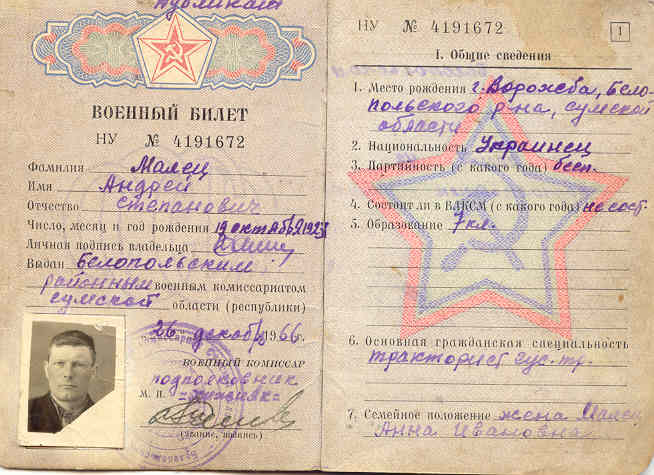 публикат
ВОЕННЫЙ БИЛЕТ
НУ № 4191672
Фамилия Малец
Имя Андрей
Отчество Степанович
Число, месяц и год рождения 19 октября 1925
Личная подпись владельца
Выдан Белопольским
районным военным комиссариатом
Сумской области (республики)
26 декабря 1966 г.
ВОЕННЫЙ КОМИССАР
подполковник
М. П.
(звание, подпись)
НУ № 4191672
1
I. Общие сведения
1. Место рождения г. Ворожба, Бело-
польского р-на, Сумской
области
2. Национальность Украинец
3. Партийность (с какого года) бесп.
4. Состоит ли в ВЛКСМ (с какого года) не сост.
5. Образование 7 кл.
6. Основная гражданская специальность
тракторист гус. тр.
7. Семейное положение жена Малец
Анна Ивановна